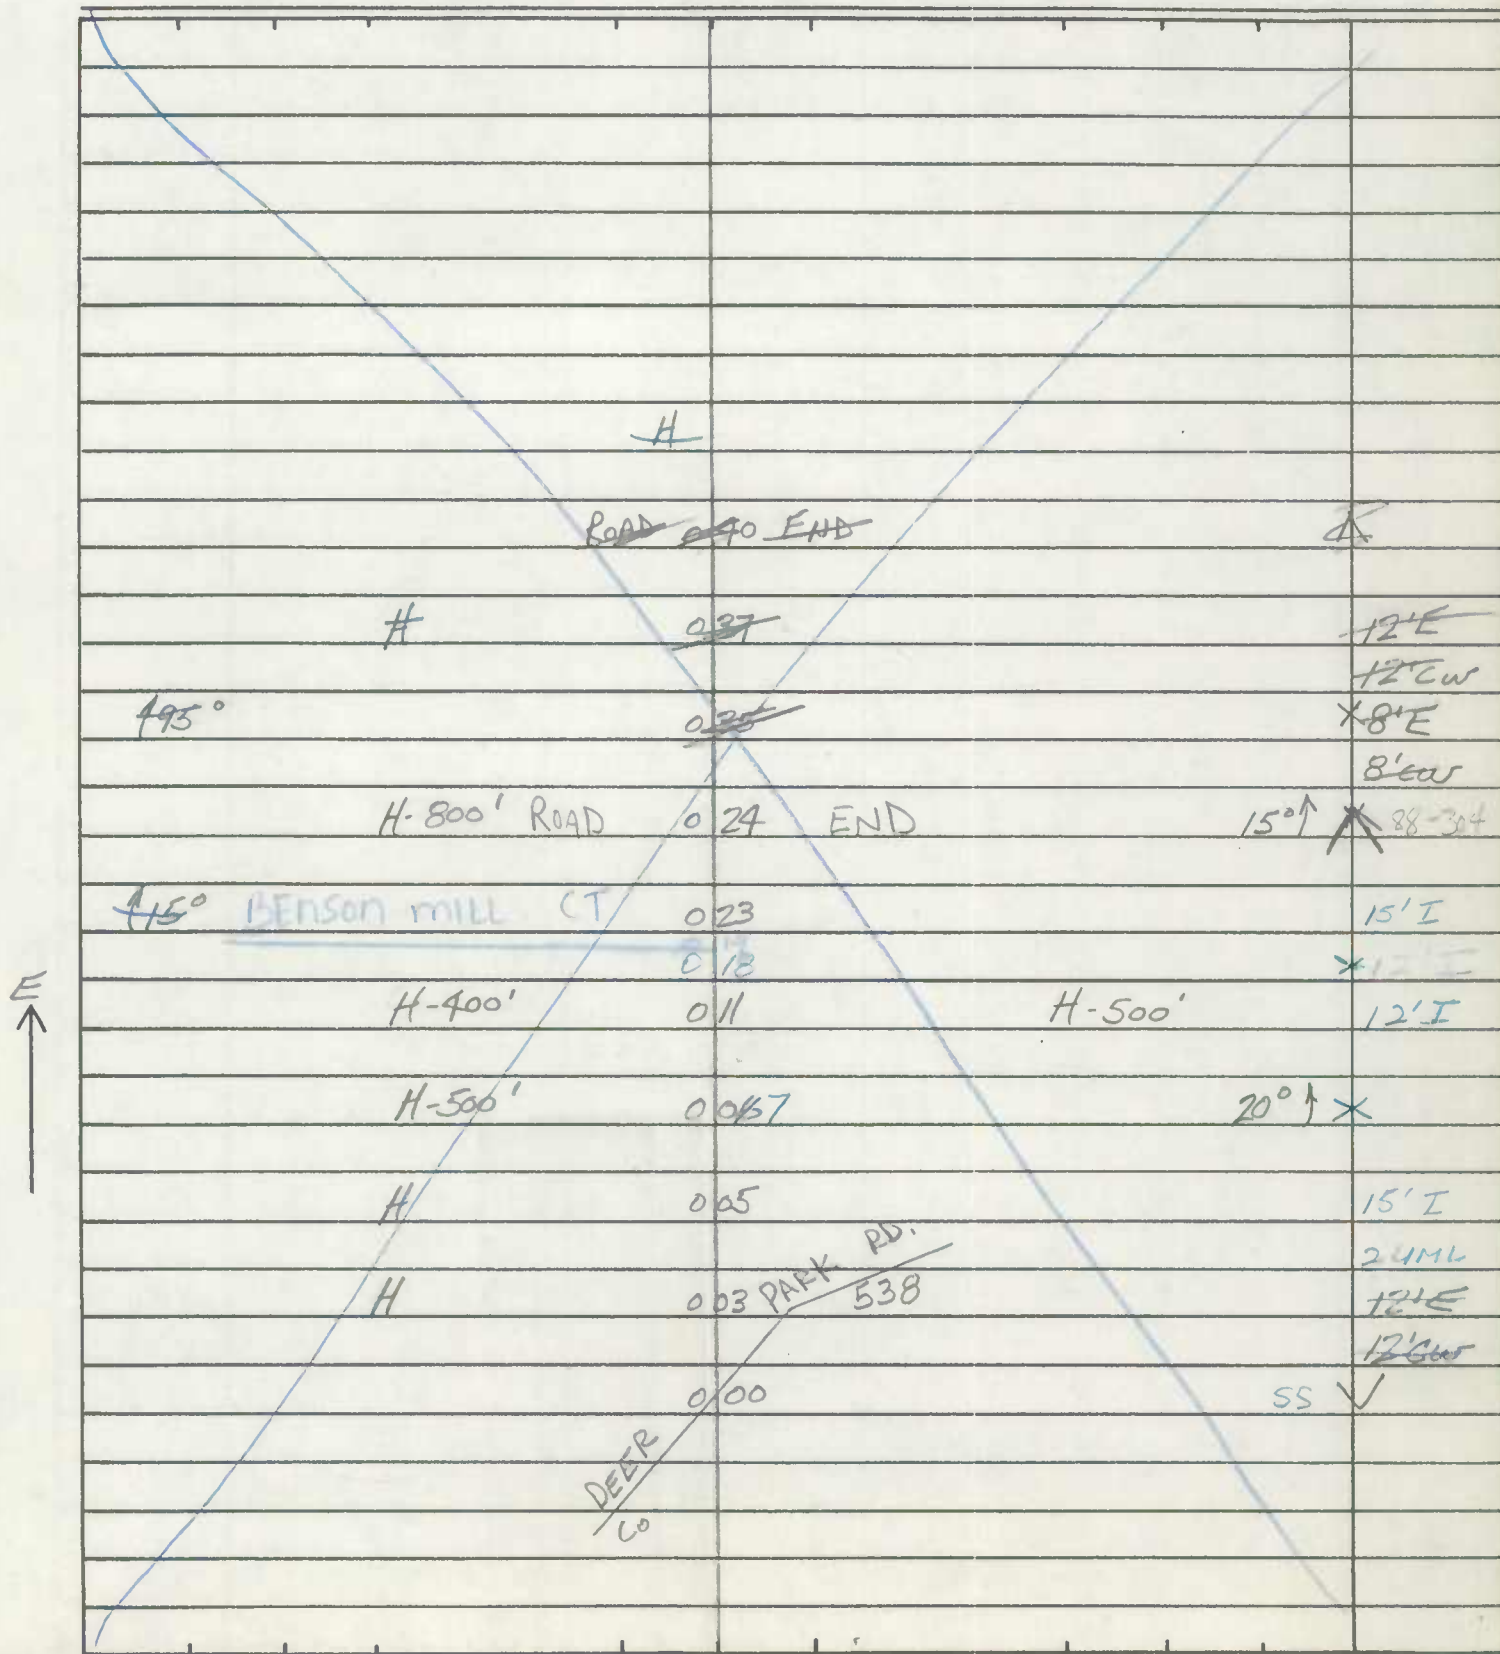 H
ROAD 0 40 END
H 0 37 12'E
12'GW
↑95° 0 35 8'E
8'GW
H-800' ROAD 0 24 END 15°↑ 88-304
↑15° BENSON MILL CT 0 23 15'I
0 18 12'I
E H-400' 0 11 H-500' 12'I
H-500' 0 07 20°↑
H 0 05 15'I
H 0 03 PARK RD. 538 12'E
12'GW
0 00 SS
DEER
CO